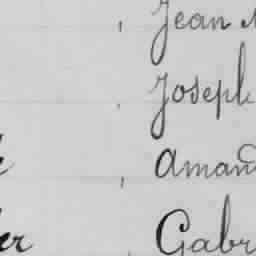 , Jean
, Joseph
, Aman
er , Gabr